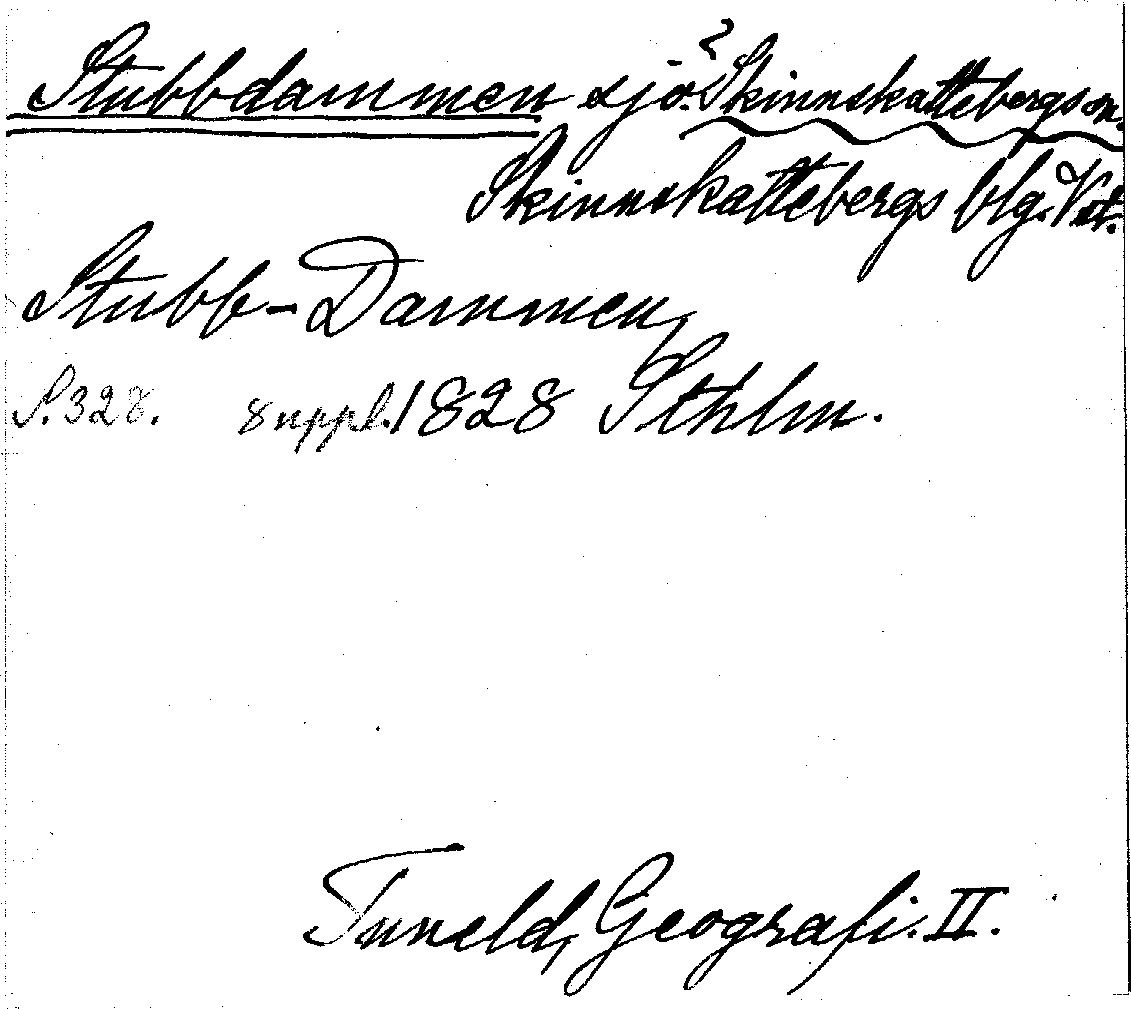 Stubbdammen sjö. ? Skinnskattebergs sn.
Skinnskattebergs blg. Vstm.
Stubb-Dammen,
S. 328. 8 uppl. 1828 Sthlm.
Tuneld, Geografi. II.